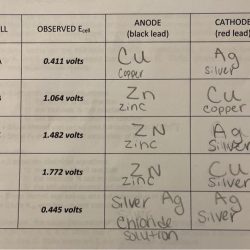 LL
OBSERVED Ecell
ANODE
(black lead)
CATHODE
(red lead)
A
0.411 volts
Cu
copper
Ag
silver
B
1.064 volts
Zn
zinc
Cu
copper
1.482 volts
ZN
zinc
Ag
Silver
1.772 volts
ZN
zinc
Cu
silver
0.445 volts
Silver Ag
Chloride
solution
Ag
Silver